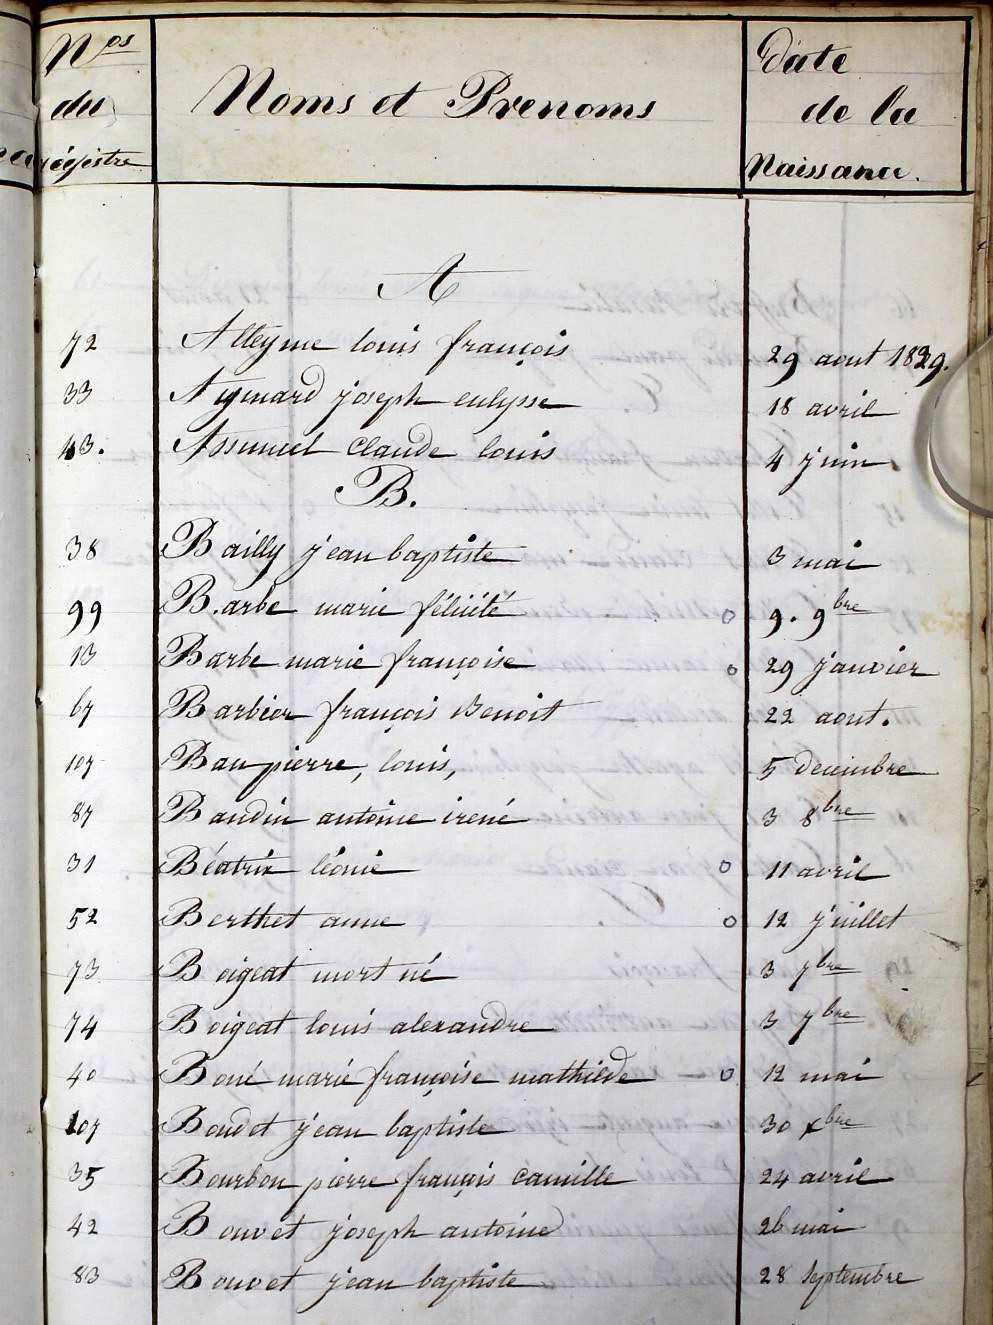 Nos du régistre Noms et Prenoms Date de la Naissance.
A
72 Alteyme louis françois 29 aout 1839.
33 Aymard joseph eulysse 18 avril
43. Assunuel Claude louis 4 juin
B.
38 Bailly jean baptiste 3 mai
99 Barbe marie félicité o 9. 9bre
13 Barbe marie françoise o 29 janvier
67 Barbier françois Benoit 22 aout.
107 Bau pierre, louis, 5 decembre
87 Baudin antoine irené 3 8bre
31 Béatrix léonie o 11 avril
52 Berthet anne o 12 juillet
73 Boigeat mort né 3 7bre
74 Boigeat louis alexandre 3 7bre
40 Boné marie françoise mathilde o 12 mai
107 Boudot jean baptiste 30 xbre
35 Bourbon pierre françis camille 24 avril
42 Bouvet joseph antoine 26 mai
83 Bouvet jean baptiste 28 septembre